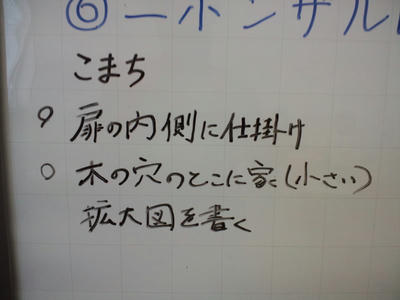 ⑥ニホンザル
こまち
○ 扉の内側に仕掛け
○ 木の穴のとこに家(小さい)
拡大図を書く